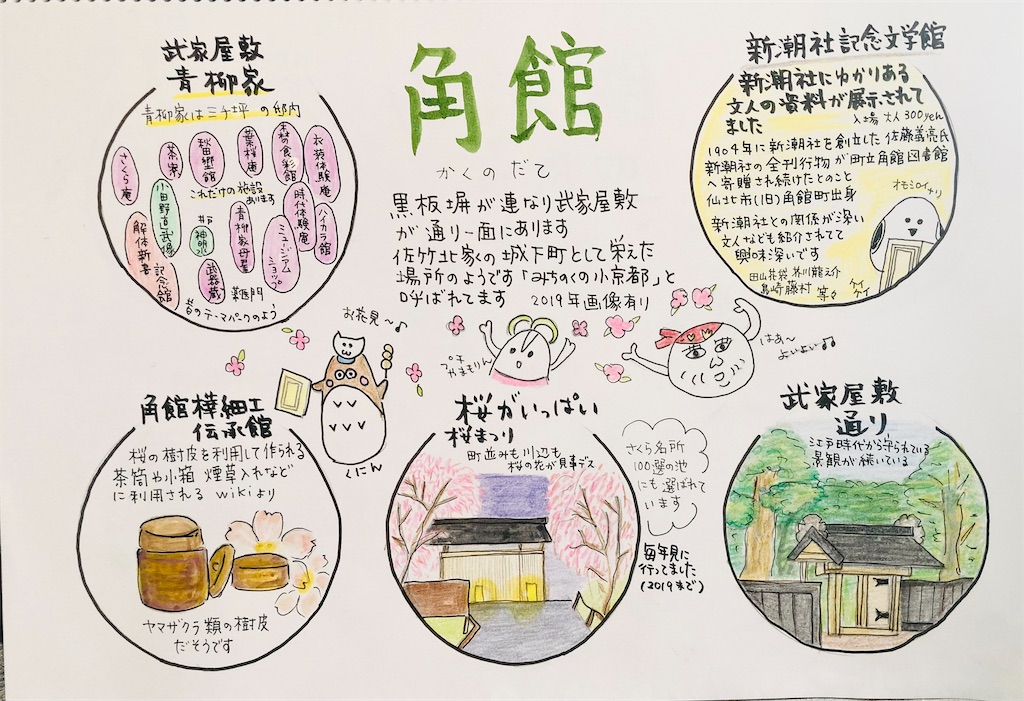 角館
かくのだて
黒板塀が連なり武家屋敷
が通り一面にあります
佐竹北家の城下町として栄えた
場所のようです「みちのくの小京都」と
呼ばれてます 2019年画像有り
武家屋敷
青柳家
青柳家は三千坪の邸内
さくら庵
茶寮
秋田郷土館
葉桜庵
森の食彩館
衣装体験庵
これだけの施設
あります
小田野直武像
井戸
神明水
青柳家母屋
時代体験庵
ハイカラ館
解体新書記念館
武器蔵
薬医門
ミュージアムショップ
昔のテーマパークのよう
新潮社記念文学館
新潮社にゆかりある
文人の資料が展示されて
ました
入場 大人300yen
1904年に新潮社を創立した佐藤義亮氏
新潮社の全刊行物が町立角館図書館
へ寄贈され続けたとのこと
仙北市(旧)角館町出身
新潮社との関係が深い
文人なども紹介されてて
興味深いです
田山花袋 芥川龍之介
島崎藤村 等々
オモシロイナリ
ケイケイ
お花見〜♪
くにん
プチ
やまもりん
はあ〜
よいよい♫
角館樺細工
伝承館
桜の樹皮を利用して作られる
茶筒や小箱 煙草入れなど
に利用される wikiより
ヤマザクラ類の樹皮
だそうです
桜がいっぱい
桜まつり
町並みも川辺も
桜の花が見事デス
さくら名所
100選の池
にも選ばれて
います
毎年見に
行ってました
(2019まで)
武家屋敷
通り
江戸時代から守られている
景観が続いている